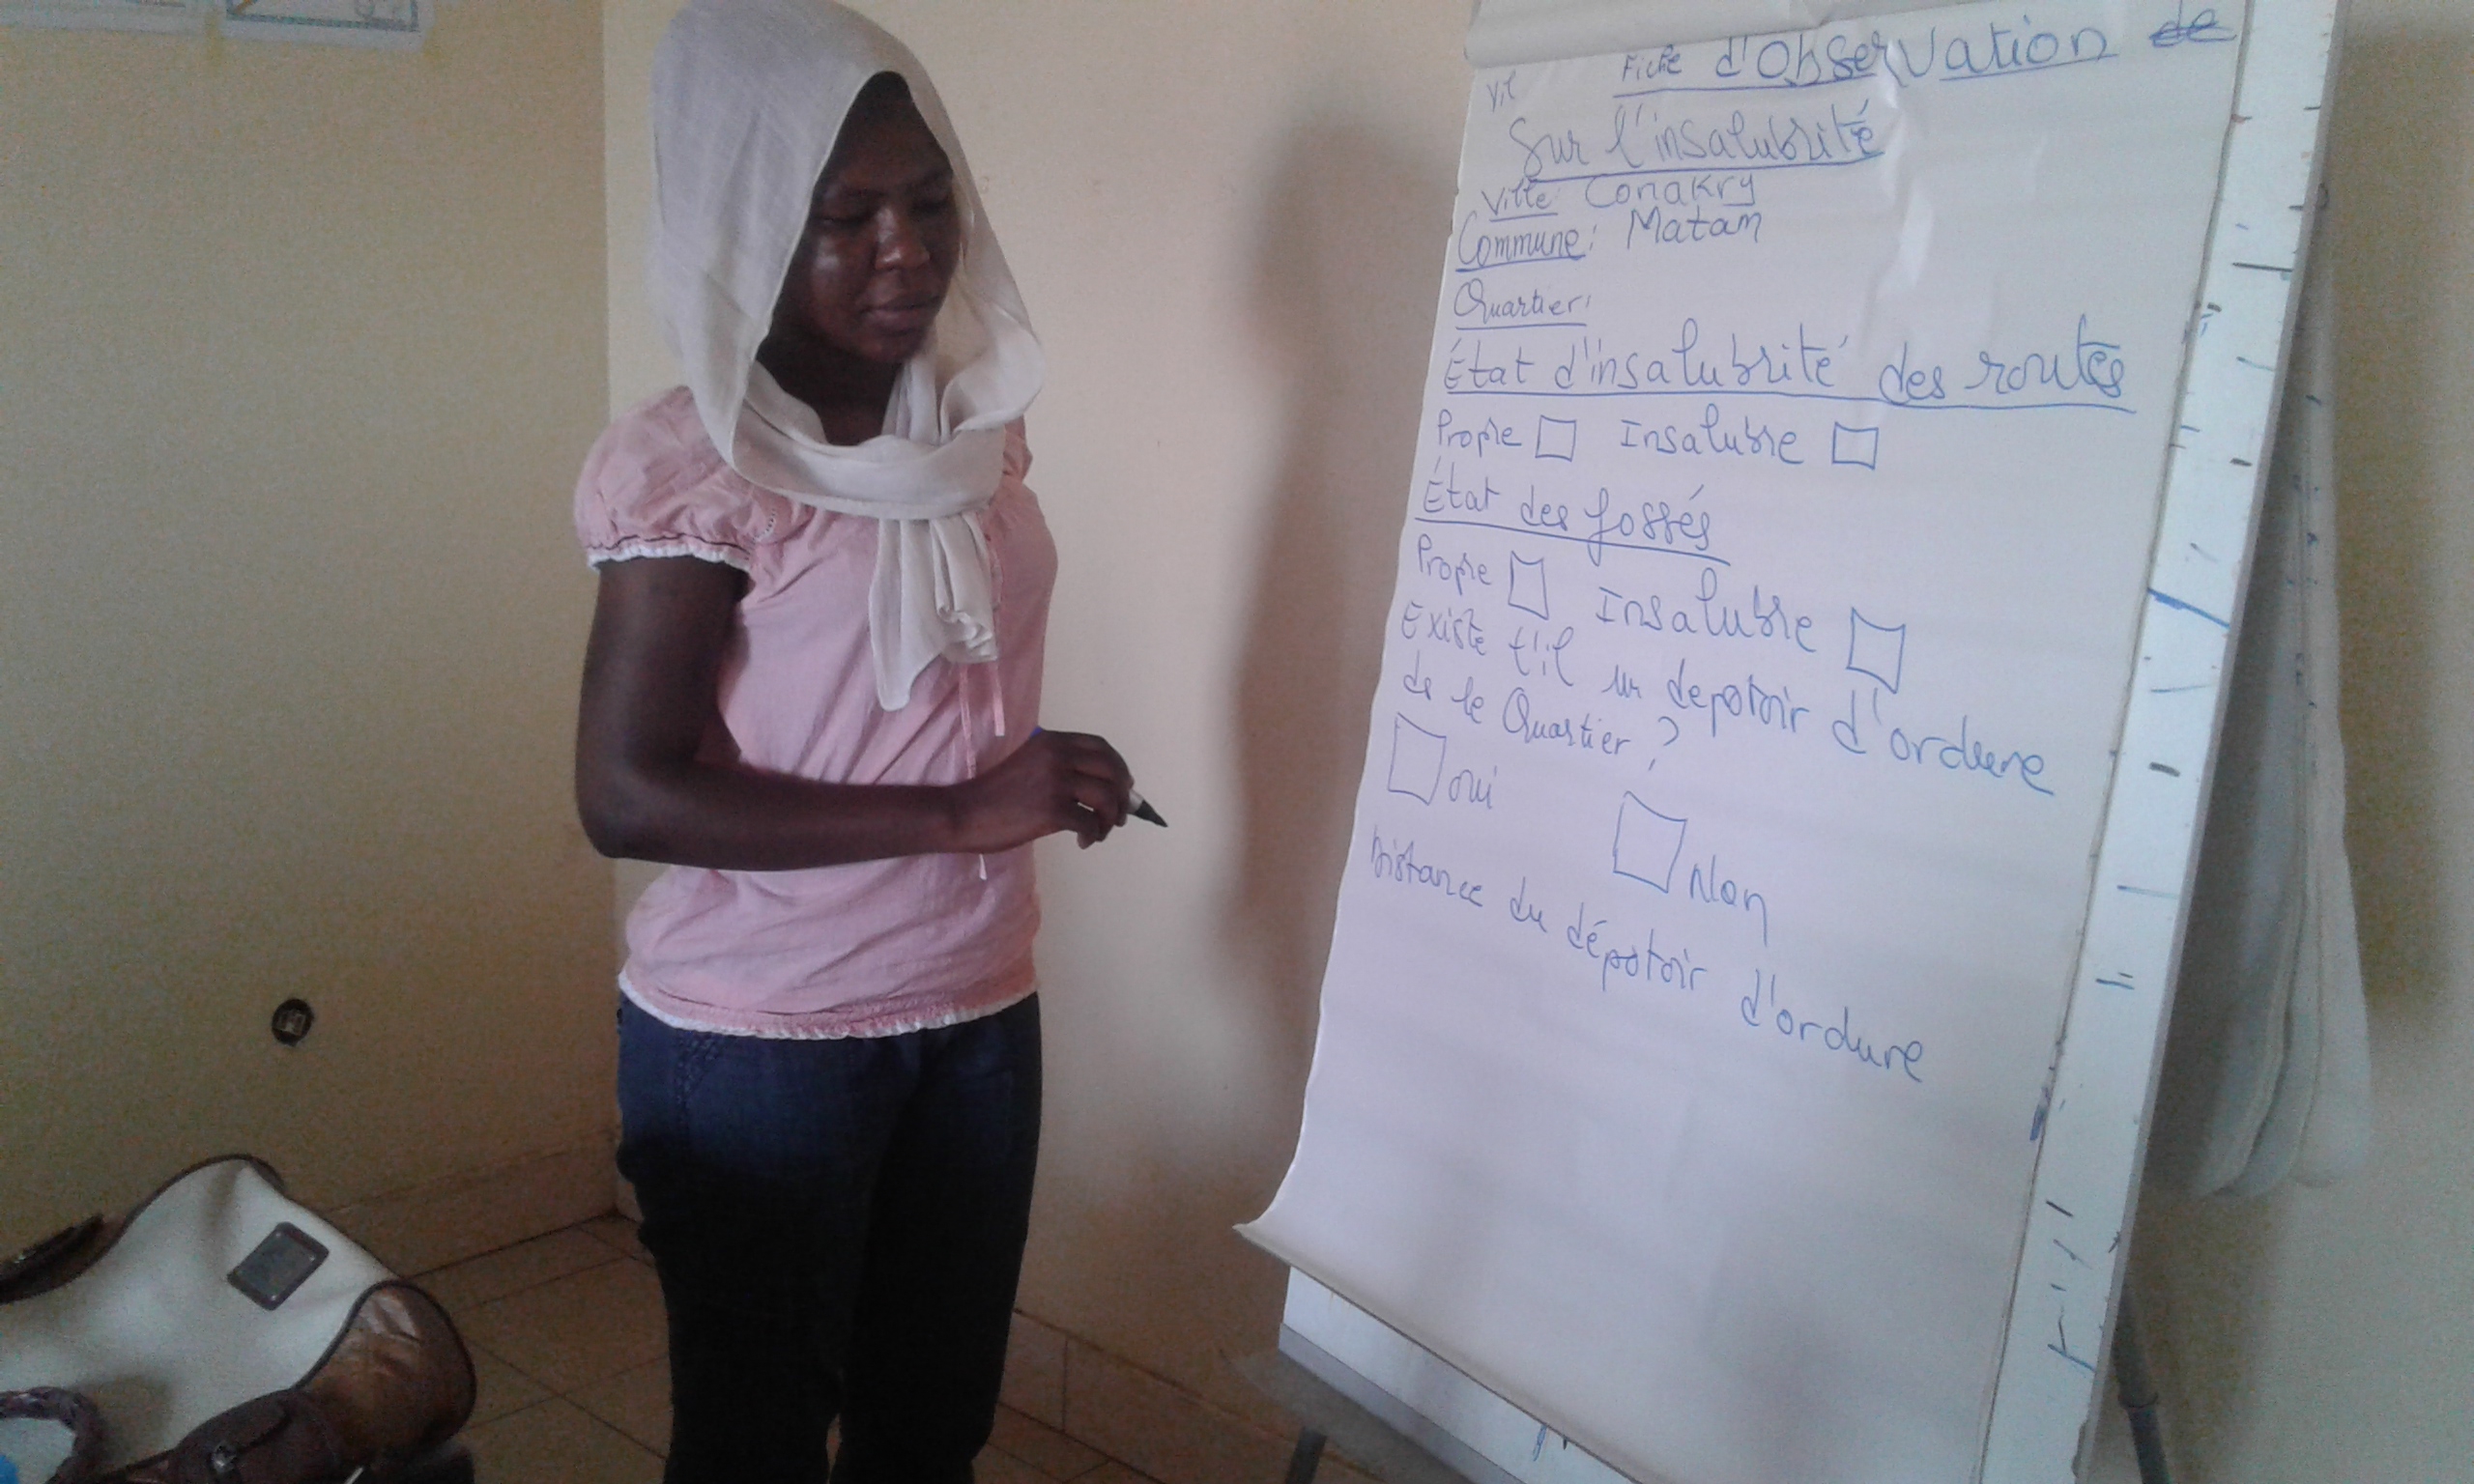 Fiche d'observation de
Vil
Sur l'insalubrité
Ville Conakry
Commune: Matam
Quartier:
État d'insalubrité des routes
Propre □ Insalubre □
État des fossés
Propre □ Insalubre □
Existe t'il un depotoir d'ordure
de le Quartier ?
□ oui □ Non
Distance du dépotoir d'ordure